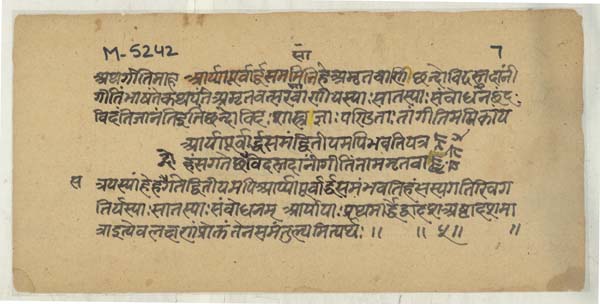 M-5242
सा
7
अथ गीतिमाह आर्यापूर्वार्द्धसममिति हे अमृतवाणी छन्दोविदस्तदानीं
गीतिं भाषंते कथयंति अमृतवत्सरवाणी यस्याः सा तस्याः संबोधने छंद
विदंति जानंति इति छन्दोविदः शास्त्रज्ञाः पण्डिताः तां गीतिमभिकांय
आर्यापूर्वार्द्धसमं द्वितीयमपि भवति यत्र
हंसगते छंदोविदस्तदानीं गीतिं नाममृतवा
स त्रयस्यां हे हंसगते द्वितीयमपि आर्यापूर्वार्द्धसमं भवति हंसस्य गतिरिव ग
तिर्यस्याः सा तस्याः संबोधनम् आर्यायाः प्रथमार्द्धे द्वादश अष्टादश मा
त्रा इत्येव लक्षणं प्रोक्तं तेन समं तुल्यमित्यर्थः ।। ।। ५ ।। ।।